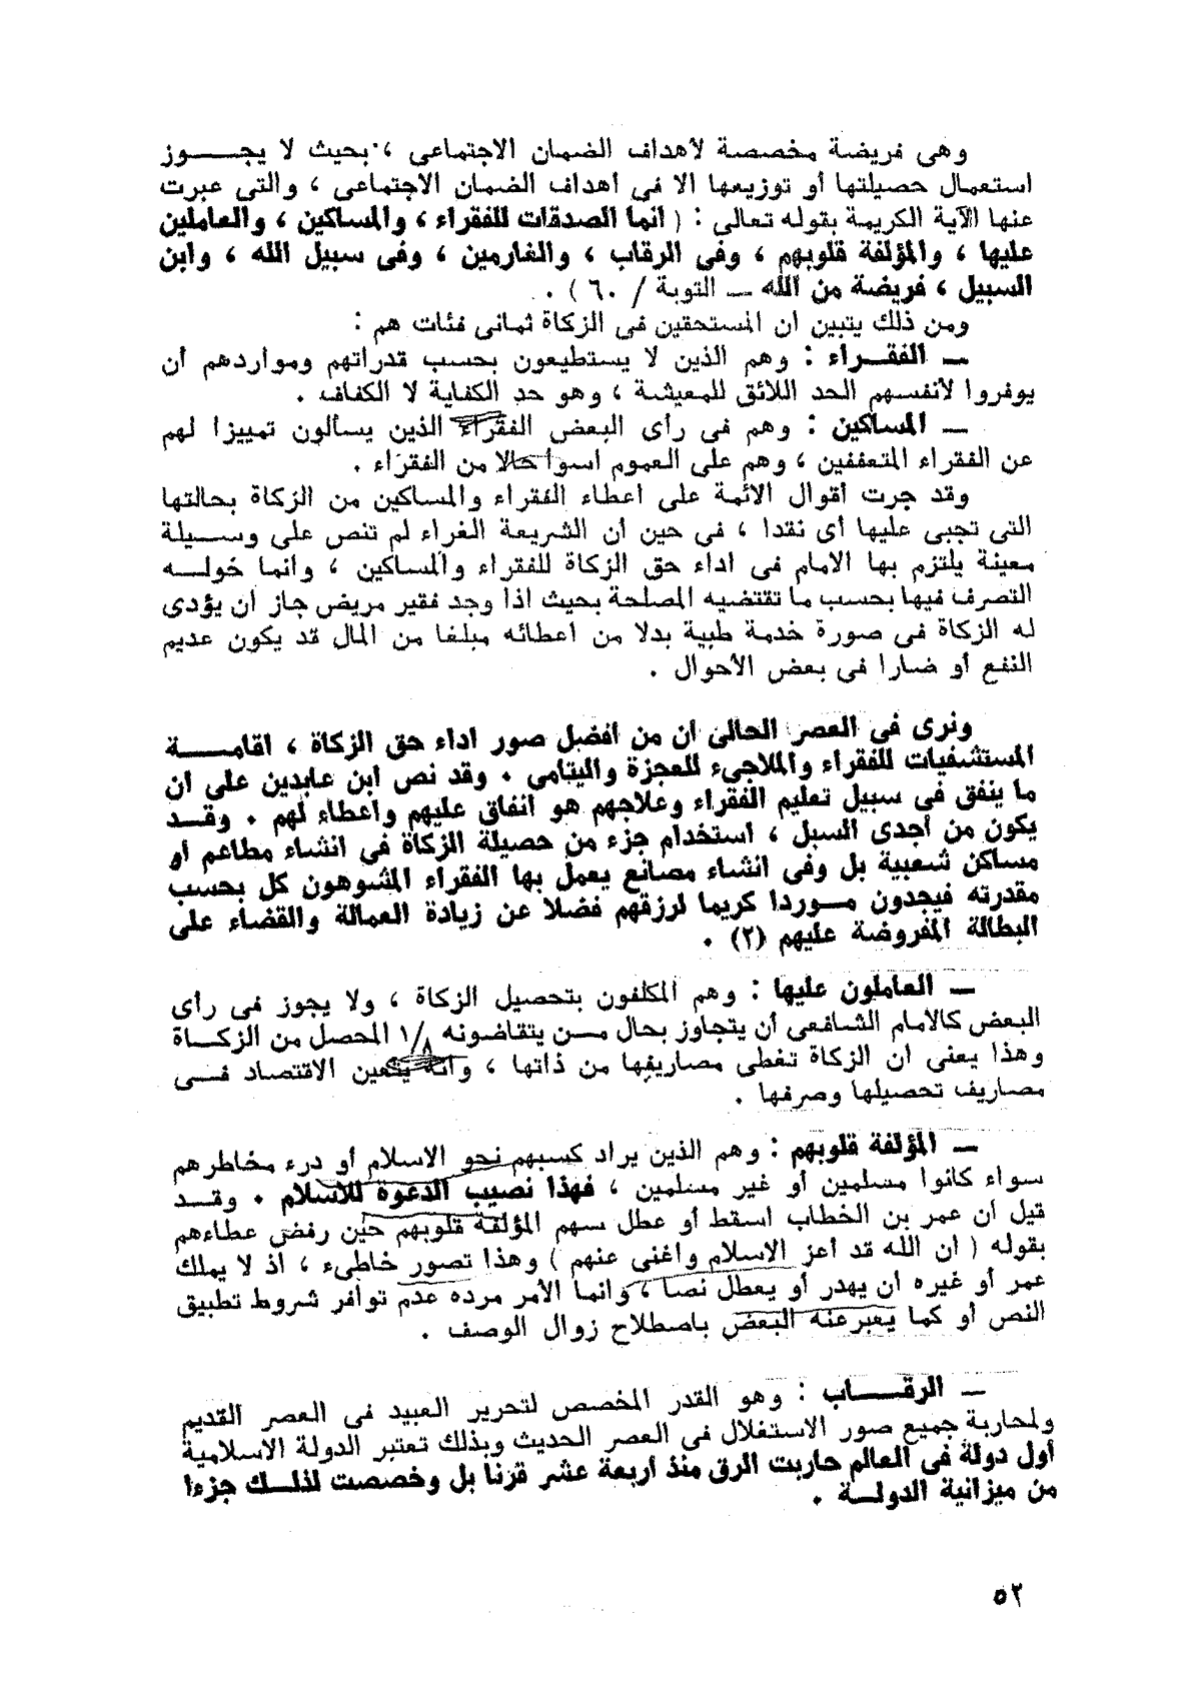 وهى فريضة مخصصة لأهداف الضمان الاجتماعى ، بحيث لا يجـــوز
استعمال حصيلتها أو توزيعها الا فى أهداف الضمان الاجتماعى ، والتى عبرت
عنها الآية الكريمة بقوله تعالى : ( انما الصدقات للفقراء ، والمساكين ، والعاملين
عليها ، والمؤلفة قلوبهم ، وفى الرقاب ، والغارمين ، وفى سبيل الله ، وابن
السبيل ، فريضة من الله ــ التوبة / ٦٠ ) .
ومن ذلك يتبين ان المستحقين فى الزكاة ثمانى فئات هم :
ــ الفقــراء : وهم الذين لا يستطيعون بحسب قدراتهم ومواردهم أن
يوفروا لأنفسهم الحد اللائق للمعيشة ، وهو حد الكفاية لا الكفاف .
ــ المساكين : وهم فى رأى البعض الفقراء الذين يسألون تمييزا لهم
عن الفقراء المتعففين ، وهم على العموم اسوا حالا من الفقراء .
وقد جرت أقوال الائمة على اعطاء الفقراء والمساكين من الزكاة بحالتها
التى تجبى عليها أى نقدا ، فى حين أن الشريعة الغراء لم تنص على وســيلة
معينة يلتزم بها الامام فى اداء حق الزكاة للفقراء والمساكين ، وانما خولــه
التصرف فيها بحسب ما تقتضيه المصلحة بحيث اذا وجد فقير مريض جاز ان يؤدى
له الزكاة فى صورة خدمة طبية بدلا من اعطائه مبلغا من المال قد يكون عديم
النفع أو ضارا فى بعض الأحوال .
ونرى فى العصر الحالى ان من افضل صور اداء حق الزكاة ، اقامــة
المستشفيات للفقراء والملاجىء للعجزة واليتامى . وقد نص ابن عابدين على ان
ما ينفق فى سبيل تعليم الفقراء وعلاجهم هو انفاق عليهم واعطاء لهم . وقــد
يكون من أجدى السبل ، استخدام جزء من حصيلة الزكاة فى انشاء مطاعم او
مساكن شعبية بل وفى انشاء مصانع يعمل بها الفقراء المشوهون كل بحسب
مقدرته فيجدون مــوردا كريما لرزقهم فضلا عن زيادة العمالة والقضاء على
البطالة المفروضة عليهم (٢) .
ــ العاملون عليها : وهم المكلفون بتحصيل الزكاة ، ولا يجوز فى رأى
البعض كالامام الشافعى أن يتجاوز بحال مــن يتقاضونه ١/٨ المحصل من الزكــاة
وهذا يعنى ان الزكاة تغطى مصاريفها من ذاتها ، وانه يتعين الاقتصاد فــى
مصاريف تحصيلها وصرفها .
ــ المؤلفة قلوبهم : وهم الذين يراد كسبهم نحو الاسلام أو درء مخاطرهم
سواء كانوا مسلمين أو غير مسلمين ، فهذا نصيب الدعوة للاسلام . وقــد
قيل أن عمر بن الخطاب اسقط أو عطل سهم المؤلفة قلوبهم حين رفض عطاءهم
بقوله ( ان الله قد أعز الاسلام واغنى عنهم ) وهذا تصور خاطىء ، اذ لا يملك
عمر أو غيره ان يهدر أو يعطل نصا ، وانما الأمر مرده عدم توافر شروط تطبيق
النص أو كما يعبر عنه البعض باصطلاح زوال الوصف .
ــ الرقــــاب : وهو القدر المخصص لتحرير العبيد فى العصر القديم
ولمحاربة جميع صور الاستغلال فى العصر الحديث وبذلك تعتبر الدولة الاسلامية
أول دولة فى العالم حاربت الرق منذ اربعة عشر قرنا بل وخصصت لذلــك جزءا
من ميزانية الدولــة .
٥٢